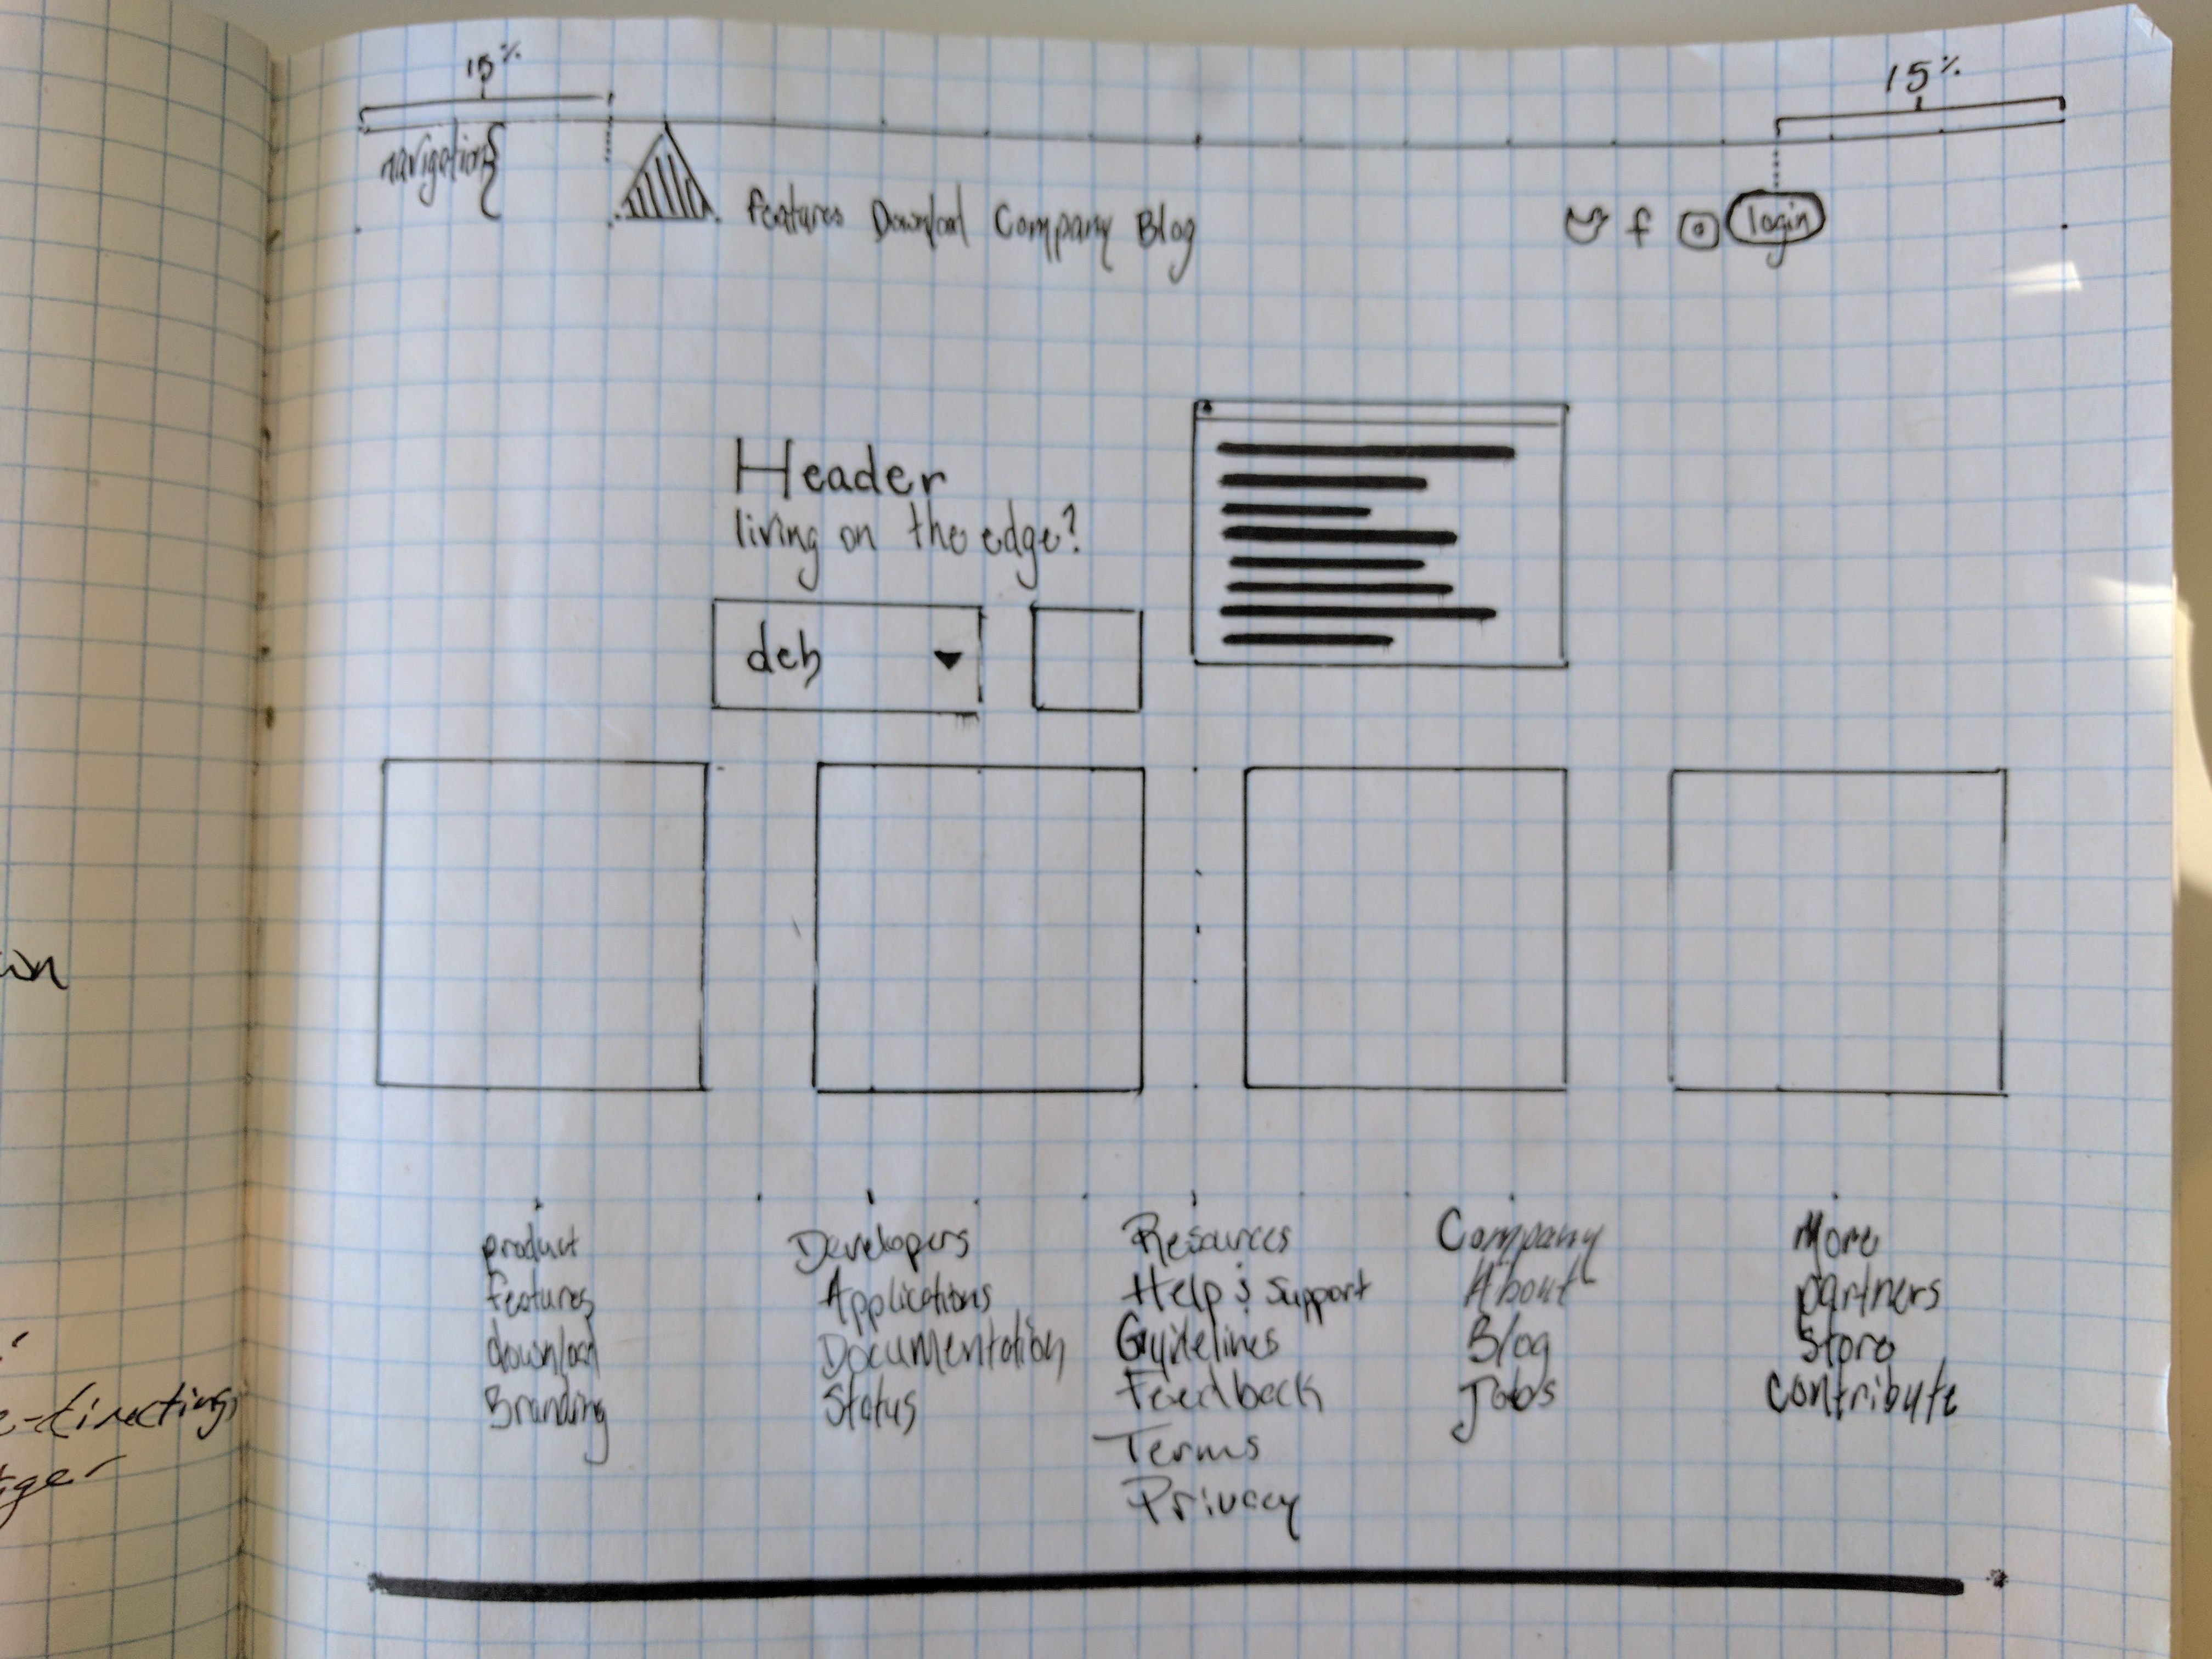 15%
15%
navigation
features Download Company Blog
f
login
Header
living on the edge?
deb
product
features
download
Branding
Developers
Applications
Documentation
Status
Resources
Help & Support
Guidelines
Feedback
Terms
Privacy
Company
About
Blog
Jobs
More
partners
Store
Contribute